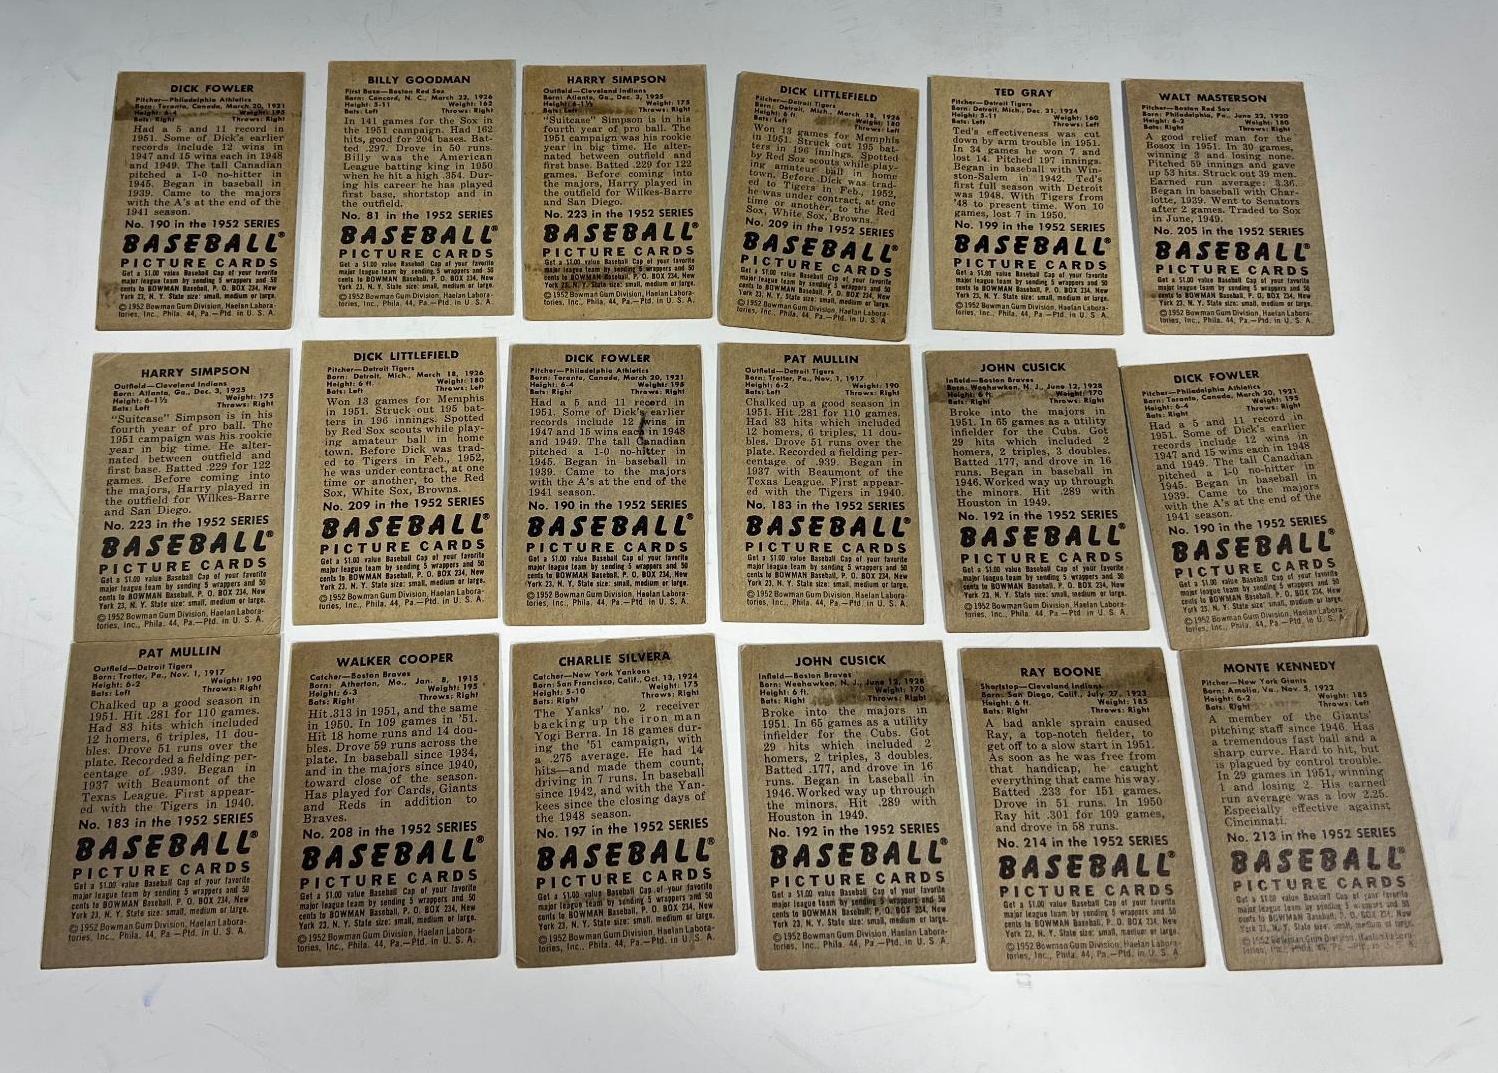 DICK FOWLER
Pitcher—Philadelphia Athletics
Born: Toronto, Canada, March 20, 1921
Height: 6-4 Weight: 195
Bats: Right Throws: Right
Had a 5 and 11 record in
1951. Some of Dick's earlier
records include 12 wins in
1947 and 15 wins each in 1948
and 1949. The tall Canadian
pitched a 1-0 no-hitter in
1945. Began in baseball in
1939. Came to the majors
with the A's at the end of the
1941 season.
No. 190 in the 1952 SERIES
BASEBALL®
PICTURE CARDS
Get a $1.00 value Baseball Cap of your favorite
major league team by sending 5 wrappers and 50
cents to BOWMAN Baseball, P. O. BOX 234, New
York 23, N. Y. State size: small, medium or large.
©1952 Bowman Gum Division, Haelan Labora-
tories, Inc., Phila. 44, Pa.—Ptd. in U. S. A.
BILLY GOODMAN
First Base—Boston Red Sox
Born: Concord, N. C., March 22, 1926
Height: 5-11 Weight: 162
Bats: Left Throws: Right
In 141 games for the Sox in
the 1951 campaign. Had 162
hits, good for 204 bases. Hit-
ted .297. Drove in 50 runs.
Billy was the American
League batting king in 1950
when he hit a high .354. Dur-
ing his career he has played
first base, shortstop and in
the outfield.
No. 81 in the 1952 SERIES
BASEBALL®
PICTURE CARDS
Get a $1.00 value Baseball Cap of your favorite
major league team by sending 5 wrappers and 50
cents to BOWMAN Baseball, P. O. BOX 234, New
York 23, N. Y. State size: small, medium or large.
©1952 Bowman Gum Division, Haelan Labora-
tories, Inc., Phila. 44, Pa.—Ptd. in U. S. A.
HARRY SIMPSON
Outfield—Cleveland Indians
Born: Atlanta, Ga., Dec. 3, 1925
Height: 6-1½ Weight: 175
Bats: Left Throws: Right
"Suitcase" Simpson is in his
fourth year of pro ball. The
1951 campaign was his rookie
year in big time. He alter-
nated between outfield and
first base. Batted .229 for 122
games. Before coming into
the majors, Harry played in
the outfield for Wilkes-Barre
and San Diego.
No. 223 in the 1952 SERIES
BASEBALL®
PICTURE CARDS
Get a $1.00 value Baseball Cap of your favorite
major league team by sending 5 wrappers and 50
cents to BOWMAN Baseball, P. O. BOX 234, New
York 23, N. Y. State size: small, medium or large.
©1952 Bowman Gum Division, Haelan Labora-
tories, Inc., Phila. 44, Pa.—Ptd. in U. S. A.
DICK LITTLEFIELD
Pitcher—Detroit Tigers
Born: Detroit, Mich., March 18, 1926
Height: 6 ft. Weight: 180
Bats: Left Throws: Left
Won 13 games for Memphis
in 1951. Struck out 195 bat-
ters in 196 innings. Spotted
by Red Sox scouts while play-
ing amateur ball in home
town. Before Dick was trad-
ed to Tigers in Feb., 1952,
he was under contract, at one
time or another, to the Red
Sox, White Sox, Browns.
No. 209 in the 1952 SERIES
BASEBALL®
PICTURE CARDS
Get a $1.00 value Baseball Cap of your favorite
major league team by sending 5 wrappers and 50
cents to BOWMAN Baseball, P. O. BOX 234, New
York 23, N. Y. State size: small, medium or large.
©1952 Bowman Gum Division, Haelan Labora-
tories, Inc., Phila. 44, Pa.—Ptd. in U. S. A.
TED GRAY
Pitcher—Detroit Tigers
Born: Detroit, Mich., Dec. 31, 1924
Height: 5-11 Weight: 160
Bats: Both Throws: Left
Ted's effectiveness was cut
down by arm trouble in 1951.
In 34 games he won 7 and
lost 14. Pitched 197 innings.
Began in baseball with Win-
ston-Salem in 1942. Ted's
first full season with Detroit
was 1948. With Tigers from
'48 to present time. Won 10
games, lost 7 in 1950.
No. 199 in the 1952 SERIES
BASEBALL®
PICTURE CARDS
Get a $1.00 value Baseball Cap of your favorite
major league team by sending 5 wrappers and 50
cents to BOWMAN Baseball, P. O. BOX 234, New
York 23, N. Y. State size: small, medium or large.
©1952 Bowman Gum Division, Haelan Labora-
tories, Inc., Phila. 44, Pa.—Ptd. in U. S. A.
WALT MASTERSON
Pitcher—Boston Red Sox
Born: Philadelphia, Pa., June 22, 1920
Height: 6-2 Weight: 180
Bats: Right Throws: Right
A good relief man for the
Bosox in 1951. In 30 games,
winning 3 and losing none.
Pitched 59 innings and gave
up 53 hits. Struck out 39 men.
Earned run average: 3.36.
Began in baseball with Char-
lotte, 1939. Went to Senators
after 2 games. Traded to Sox
in June, 1949.
No. 205 in the 1952 SERIES
BASEBALL®
PICTURE CARDS
Get a $1.00 value Baseball Cap of your favorite
major league team by sending 5 wrappers and 50
cents to BOWMAN Baseball, P. O. BOX 234, New
York 23, N. Y. State size: small, medium or large.
©1952 Bowman Gum Division, Haelan Labora-
tories, Inc., Phila. 44, Pa.—Ptd. in U. S. A.
HARRY SIMPSON
Outfield—Cleveland Indians
Born: Atlanta, Ga., Dec. 3, 1925
Height: 6-1½ Weight: 175
Bats: Left Throws: Right
"Suitcase" Simpson is in his
fourth year of pro ball. The
1951 campaign was his rookie
year in big time. He alter-
nated between outfield and
first base. Batted .229 for 122
games. Before coming into
the majors, Harry played in
the outfield for Wilkes-Barre
and San Diego.
No. 223 in the 1952 SERIES
BASEBALL®
PICTURE CARDS
Get a $1.00 value Baseball Cap of your favorite
major league team by sending 5 wrappers and 50
cents to BOWMAN Baseball, P. O. BOX 234, New
York 23, N. Y. State size: small, medium or large.
©1952 Bowman Gum Division, Haelan Labora-
tories, Inc., Phila. 44, Pa.—Ptd. in U. S. A.
DICK LITTLEFIELD
Pitcher—Detroit Tigers
Born: Detroit, Mich., March 18, 1926
Height: 6 ft. Weight: 180
Bats: Left Throws: Left
Won 13 games for Memphis
in 1951. Struck out 195 bat-
ters in 196 innings. Spotted
by Red Sox scouts while play-
ing amateur ball in home
town. Before Dick was trad-
ed to Tigers in Feb., 1952,
he was under contract, at one
time or another, to the Red
Sox, White Sox, Browns.
No. 209 in the 1952 SERIES
BASEBALL®
PICTURE CARDS
Get a $1.00 value Baseball Cap of your favorite
major league team by sending 5 wrappers and 50
cents to BOWMAN Baseball, P. O. BOX 234, New
York 23, N. Y. State size: small, medium or large.
©1952 Bowman Gum Division, Haelan Labora-
tories, Inc., Phila. 44, Pa.—Ptd. in U. S. A.
DICK FOWLER
Pitcher—Philadelphia Athletics
Born: Toronto, Canada, March 20, 1921
Height: 6-4 Weight: 195
Bats: Right Throws: Right
Had a 5 and 11 record in
1951. Some of Dick's earlier
records include 12 wins in
1947 and 15 wins each in 1948
and 1949. The tall Canadian
pitched a 1-0 no-hitter in
1945. Began in baseball in
1939. Came to the majors
with the A's at the end of the
1941 season.
No. 190 in the 1952 SERIES
BASEBALL®
PICTURE CARDS
Get a $1.00 value Baseball Cap of your favorite
major league team by sending 5 wrappers and 50
cents to BOWMAN Baseball, P. O. BOX 234, New
York 23, N. Y. State size: small, medium or large.
©1952 Bowman Gum Division, Haelan Labora-
tories, Inc., Phila. 44, Pa.—Ptd. in U. S. A.
PAT MULLIN
Outfield—Detroit Tigers
Born: Trotter, Pa., Nov. 1, 1917
Height: 6-2 Weight: 190
Bats: Left Throws: Right
Chalked up a good season in
1951. Hit .281 for 110 games.
Had 83 hits which included
12 homers, 6 triples, 11 dou-
bles. Drove 51 runs over the
plate. Recorded a fielding per-
centage of .939. Began in
1937 with Beaumont of the
Texas League. First appear-
ed with the Tigers in 1940.
No. 183 in the 1952 SERIES
BASEBALL®
PICTURE CARDS
Get a $1.00 value Baseball Cap of your favorite
major league team by sending 5 wrappers and 50
cents to BOWMAN Baseball, P. O. BOX 234, New
York 23, N. Y. State size: small, medium or large.
©1952 Bowman Gum Division, Haelan Labora-
tories, Inc., Phila. 44, Pa.—Ptd. in U. S. A.
JOHN CUSICK
Infield—Boston Braves
Born: Weehawken, N. J., June 12, 1928
Height: 6 ft. Weight: 170
Bats: Right Throws: Right
Broke into the majors in
1951. In 65 games as a utility
infielder for the Cubs. Got
29 hits which included 2
homers, 2 triples, 3 doubles.
Batted .177, and drove in 16
runs. Began in baseball in
1946. Worked way up through
the minors. Hit .289 with
Houston in 1949.
No. 192 in the 1952 SERIES
BASEBALL®
PICTURE CARDS
Get a $1.00 value Baseball Cap of your favorite
major league team by sending 5 wrappers and 50
cents to BOWMAN Baseball, P. O. BOX 234, New
York 23, N. Y. State size: small, medium or large.
©1952 Bowman Gum Division, Haelan Labora-
tories, Inc., Phila. 44, Pa.—Ptd. in U. S. A.
DICK FOWLER
Pitcher—Philadelphia Athletics
Born: Toronto, Canada, March 20, 1921
Height: 6-4 Weight: 195
Bats: Right Throws: Right
Had a 5 and 11 record in
1951. Some of Dick's earlier
records include 12 wins in
1947 and 15 wins each in 1948
and 1949. The tall Canadian
pitched a 1-0 no-hitter in
1945. Began in baseball in
1939. Came to the majors
with the A's at the end of the
1941 season.
No. 190 in the 1952 SERIES
BASEBALL®
PICTURE CARDS
Get a $1.00 value Baseball Cap of your favorite
major league team by sending 5 wrappers and 50
cents to BOWMAN Baseball, P. O. BOX 234, New
York 23, N. Y. State size: small, medium or large.
©1952 Bowman Gum Division, Haelan Labora-
tories, Inc., Phila. 44, Pa.—Ptd. in U. S. A.
PAT MULLIN
Outfield—Detroit Tigers
Born: Trotter, Pa., Nov. 1, 1917
Height: 6-2 Weight: 190
Bats: Left Throws: Right
Chalked up a good season in
1951. Hit .281 for 110 games.
Had 83 hits which included
12 homers, 6 triples, 11 dou-
bles. Drove 51 runs over the
plate. Recorded a fielding per-
centage of .939. Began in
1937 with Beaumont of the
Texas League. First appear-
ed with the Tigers in 1940.
No. 183 in the 1952 SERIES
BASEBALL®
PICTURE CARDS
Get a $1.00 value Baseball Cap of your favorite
major league team by sending 5 wrappers and 50
cents to BOWMAN Baseball, P. O. BOX 234, New
York 23, N. Y. State size: small, medium or large.
©1952 Bowman Gum Division, Haelan Labora-
tories, Inc., Phila. 44, Pa.—Ptd. in U. S. A.
WALKER COOPER
Catcher—Boston Braves
Born: Atherton, Mo., Jan. 8, 1915
Height: 6-3 Weight: 195
Bats: Right Throws: Right
Hit .313 in 1951, and the same
in 1950. In 109 games in '51.
Hit 18 home runs and 14 dou-
bles. Drove 59 runs across the
plate. In baseball since 1934,
and in the majors since 1940,
toward close of the season.
Has played for Cards, Giants
and Reds in addition to
Braves.
No. 208 in the 1952 SERIES
BASEBALL®
PICTURE CARDS
Get a $1.00 value Baseball Cap of your favorite
major league team by sending 5 wrappers and 50
cents to BOWMAN Baseball, P. O. BOX 234, New
York 23, N. Y. State size: small, medium or large.
©1952 Bowman Gum Division, Haelan Labora-
tories, Inc., Phila. 44, Pa.—Ptd. in U. S. A.
CHARLIE SILVERA
Catcher—New York Yankees
Born: San Francisco, Calif., Oct. 13, 1924
Height: 5-10 Weight: 175
Bats: Right Throws: Right
The Yanks' no. 2 receiver
backing up the iron man
Yogi Berra. In 18 games dur-
ing the '51 campaign, with
a .275 average. He had 14
hits—and made them count,
driving in 7 runs. In baseball
since 1942, and with the Yan-
kees since the closing days of
the 1948 season.
No. 197 in the 1952 SERIES
BASEBALL®
PICTURE CARDS
Get a $1.00 value Baseball Cap of your favorite
major league team by sending 5 wrappers and 50
cents to BOWMAN Baseball, P. O. BOX 234, New
York 23, N. Y. State size: small, medium or large.
©1952 Bowman Gum Division, Haelan Labora-
tories, Inc., Phila. 44, Pa.—Ptd. in U. S. A.
JOHN CUSICK
Infield—Boston Braves
Born: Weehawken, N. J., June 12, 1928
Height: 6 ft. Weight: 170
Bats: Right Throws: Right
Broke into the majors in
1951. In 65 games as a utility
infielder for the Cubs. Got
29 hits which included 2
homers, 2 triples, 3 doubles.
Batted .177, and drove in 16
runs. Began in baseball in
1946. Worked way up through
the minors. Hit .289 with
Houston in 1949.
No. 192 in the 1952 SERIES
BASEBALL®
PICTURE CARDS
Get a $1.00 value Baseball Cap of your favorite
major league team by sending 5 wrappers and 50
cents to BOWMAN Baseball, P. O. BOX 234, New
York 23, N. Y. State size: small, medium or large.
©1952 Bowman Gum Division, Haelan Labora-
tories, Inc., Phila. 44, Pa.—Ptd. in U. S. A.
RAY BOONE
Shortstop—Cleveland Indians
Born: San Diego, Calif., July 27, 1923
Height: 6 ft. Weight: 185
Bats: Right Throws: Right
A bad ankle sprain caused
Ray, a top-notch fielder, to
get off to a slow start in 1951.
As soon as he was free from
that handicap, he caught
everything that came his way.
Batted .233 for 151 games.
Drove in 51 runs. In 1950
Ray hit .301 for 109 games,
and drove in 58 runs.
No. 214 in the 1952 SERIES
BASEBALL®
PICTURE CARDS
Get a $1.00 value Baseball Cap of your favorite
major league team by sending 5 wrappers and 50
cents to BOWMAN Baseball, P. O. BOX 234, New
York 23, N. Y. State size: small, medium or large.
©1952 Bowman Gum Division, Haelan Labora-
tories, Inc., Phila. 44, Pa.—Ptd. in U. S. A.
MONTE KENNEDY
Pitcher—New York Giants
Born: Amelia, Va., Nov. 5, 1922
Height: 6-2 Weight: 185
Bats: Right Throws: Left
A member of the Giants'
pitching staff since 1946. Has
a tremendous fast ball and a
sharp curve. Hard to hit, but
is plagued by control trouble.
In 29 games in 1951, winning
1 and losing 2. His earned
run average was a low 2.25.
Especially effective against
Cincinnati.
No. 213 in the 1952 SERIES
BASEBALL®
PICTURE CARDS
Get a $1.00 value Baseball Cap of your favorite
major league team by sending 5 wrappers and 50
cents to BOWMAN Baseball, P. O. BOX 234, New
York 23, N. Y. State size: small, medium or large.
©1952 Bowman Gum Division, Haelan Labora-
tories, Inc., Phila. 44, Pa.—Ptd. in U. S. A.